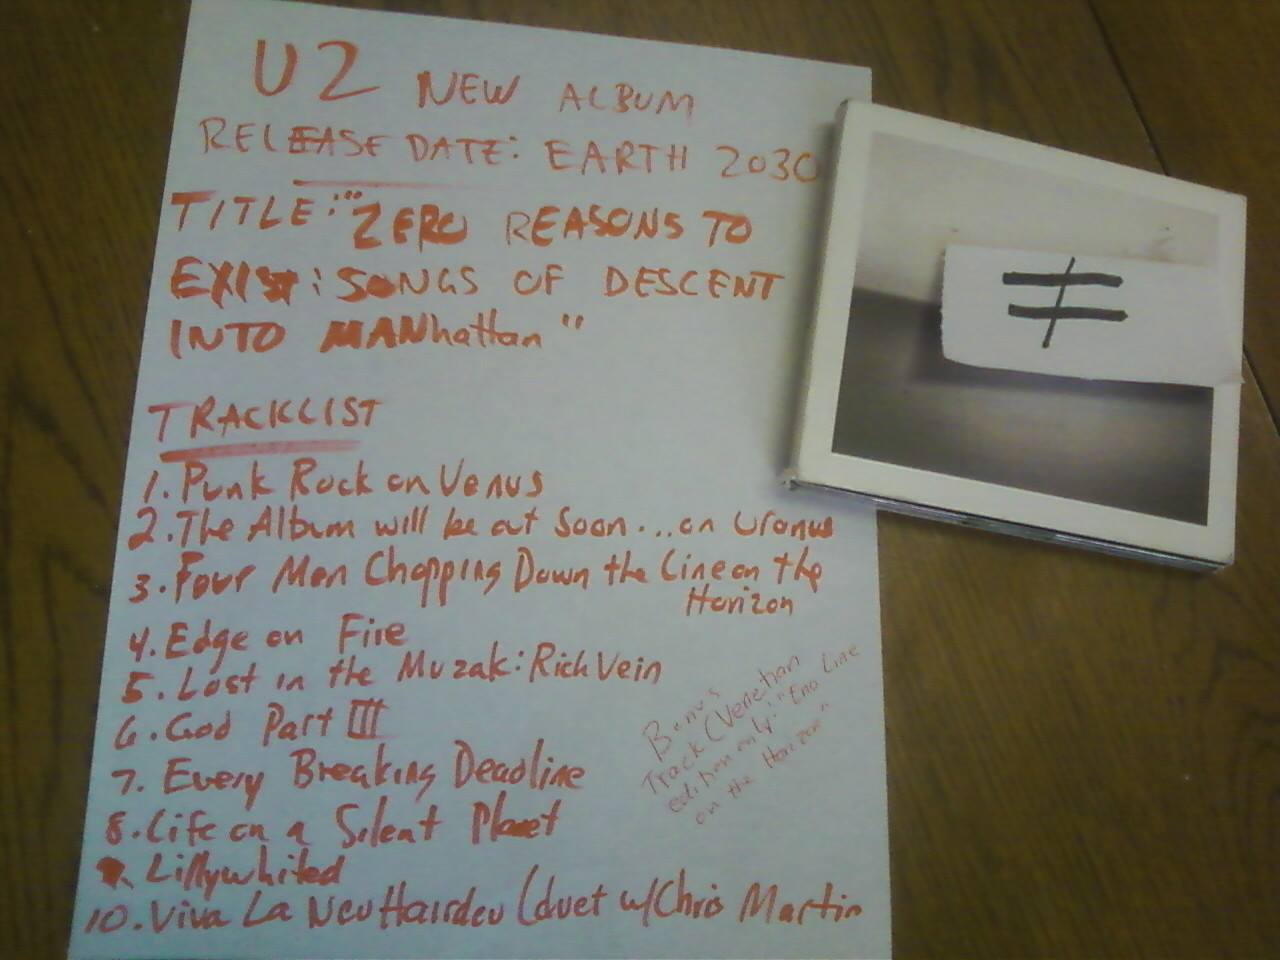 U2 NEW ALBUM
RELEASE DATE: EARTH 2030
TITLE: "ZERO REASONS TO
EXIST: SONGS OF DESCENT
INTO MANhattan"
TRACKLIST
1. Punk Rock on Venus
2. The Album will be out Soon... on Uranus
3. Four Men Chopping Down the Line on the
Horizon
4. Edge on Fire
5. Lost in the Muzak: Rich Vein
6. God Part III
7. Every Breaking Deadline
8. Life on a Silent Planet
9. Lillywhited
10. Viva La New Hairdew (duet w/Chris Martin
Bonus
Track (Venetian
edition only: "Eno Line
on the Horizon"
≠